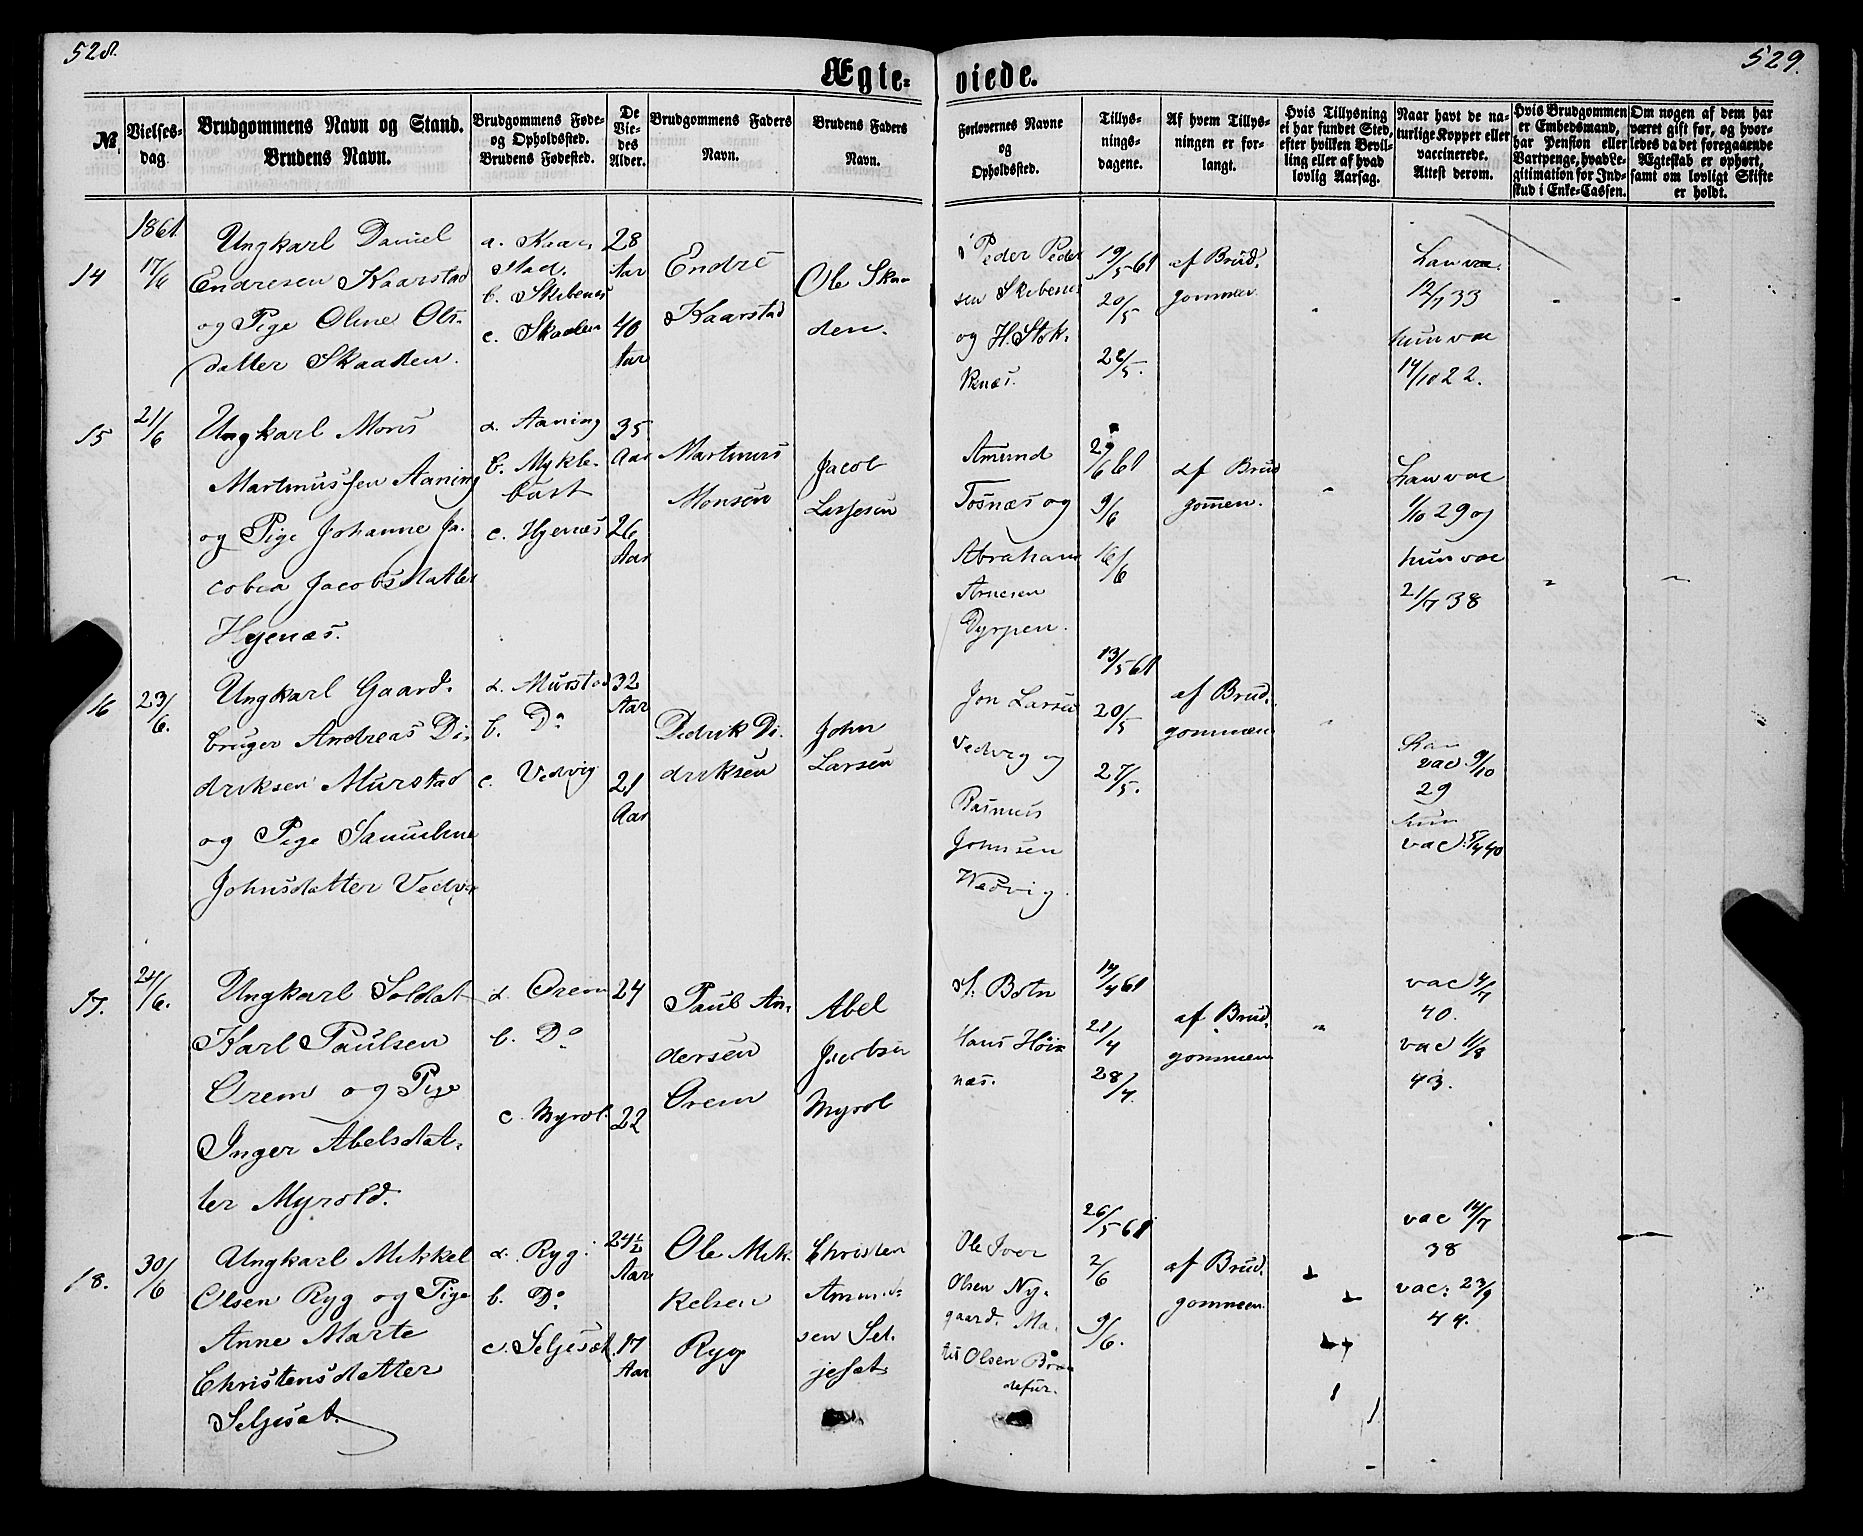 528.
529.
Ægte-
viede.
№
Vielses-
dag.
Brudgommens Navn og Stand.
Brudens Navn.
Brudgommens Føde-
og Opholdssted.
Brudens Fødested.
De
Vie-
des
Alder.
Brudgommens Faders
Navn.
Brudens Faders
Navn.
Forlovernes Navne
og
Opholdssted.
Tillys-
nings-
dagene.
Af hvem Tillys-
ningen er for-
langt.
Hvis Tillysning
ei har fundet Sted,
efter hvilken Bevil-
ling eller af hvad
lovlig Aarsag.
Naar havt de na-
turlige Kopper eller
vaccinerede.
Attest derom.
Hvis Brudgommen
er Embedsmand,
har Pension eller
Vartpenge, hvad Le-
gitimation for Ind-
skud i Enke-Cassen.
Om nogen af dem har
været gift før, og hvor-
ledes da det foregaaende
Ægteskab er ophørt,
samt om lovligt Skifte
er holdt.
14
1861.
17/6
Ungkarl Daniel
Endresen Kaarstad
og Pige Oline Ols-
datter Skaaden.
a. Kaar-
stad.
b. Skibenes
c. Skaaden
28
Aar
40
Aar
Endre
Kaarstad
Ole Skaa
den.
Peder Peder
sen Skibenes
og H. Stok-
kenæs.
19/5 61
20/5
22/5.
af Brud-
gommen
Han vac.
12/7 33
hun vac
14/10 22.
15
21/6
Ungkarl Mons
Martinussen Aaning
og Pige Johanne Ja-
cobea Jacobsdatter
Hyenæs.
a. Aaning
b. Mykle-
bust
c. Hyenæs
35
Aar
26
Aar
Martinus
Monsen
Jacob
Lassesen
Amund
Tosnæs og
Abraham
Arnesen
Dyrpen.
2/6 61
9/6
16/6
af Brud
gommen.
Han vac
1/10 29 og
hun vac
21/7 38
16
23/6.
Ungkarl Gaard-
bruger Andreas Di-
driksen Murstad
og Pige Samuline
Johnsdatter Vedvig
a. Murstad
b. Do
c. Vedvig
32
Aar
21
Aar
Didrik Di-
driksen
John
Larsen
Jon Larsen
Vedvig og
Rasmus
Johnsen
Wedvig.
13/5 61
20/5
27/5.
af Brud-
gommen
Han
vac. 9/10
29
hun
vac. 5/7 40
17.
24/6.
Ungkarl Soldat
Karl Paulsen
Orem og Pige
Inger Abelsdat-
ter Myrold.
a. Orem
b. Do
c. Myrol.
24
22
Paul An-
dersen
Orem
Abel
Jacobsen
Myrol
S. Botn
Hans Høi-
næs.
14/4 61
21/4
28/4.
af Brud-
gommen
vac 4/7
40.
vac 11/8
43.
18.
30/6
Ungkarl Mikkel
Olsen Ryg og Pige
Anne Marte
Christensdatter
Seljeset.
a. Ryg.
b. Do
c. Seljeset
24½
Aar
17
Aar
Ole Mik-
kelsen
Ryg
Christen
Amund-
sen Sel-
jeset
Ole Iver
Olsen Ny-
gaard. Ma-
tis Olsen
26/5 61
2/6
9/6.
af Brud-
gommen
vac 14/7
38
vac: 23/9
44.